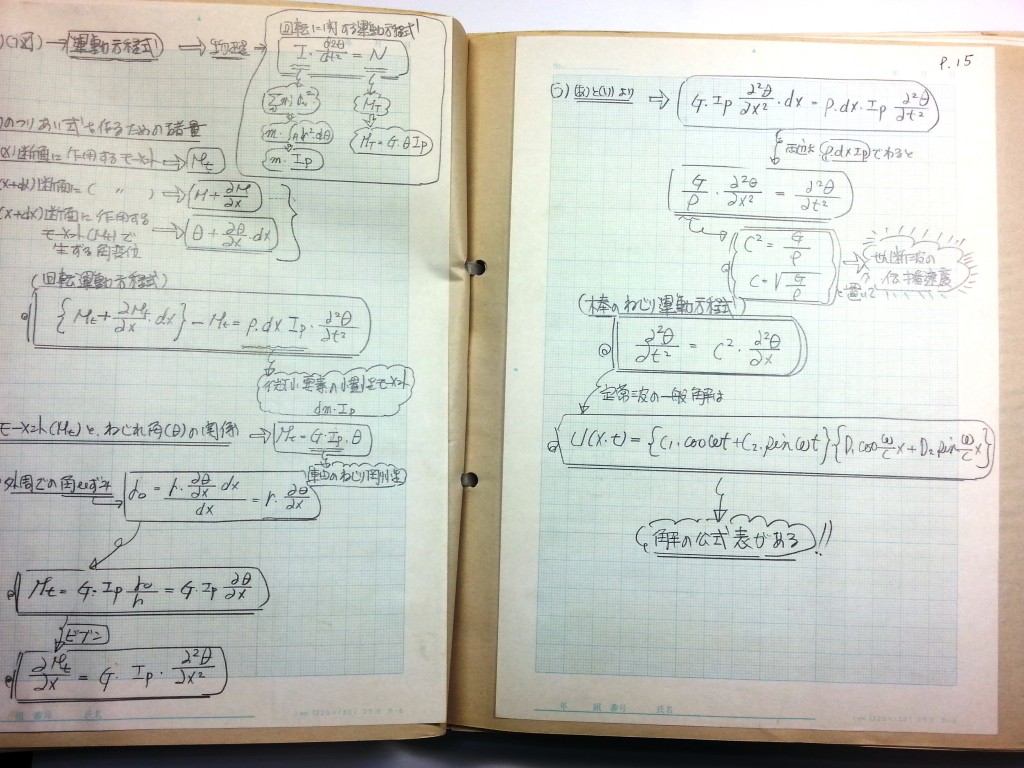 (図) → 運動方程式 ⇒ 物理
回転に関する運動方程式
I · ∂²θ/∂t² = N
M_T
m · I_P
M_T = G · θ I_P
のつりあい式を作るための諸量
(x)断面に作用するモーメント ⇒ M_t
(x+dx)断面に( 〃 ) ⇒ M + ∂M/∂x
(x+dx)断面に作用する
モーメント(M_t)で
生ずる角変位
⇒ θ + ∂θ/∂x · dx
(回転運動方程式)
{M_t + ∂M_t/∂x · dx} - M_t = ρ · dx I_P · ∂²θ/∂t²
微小要素の慣性モーメント
dm · I_P
モーメント(M_t)と、ねじれ角(θ)の関係 ⇒ M_t = G · I_P · θ
軸のねじり剛性
外周での角ひずみ γ₀ = r · ∂θ/∂x · dx / dx = r · ∂θ/∂x
M_t = G · I_P γ₀/r = G · I_P ∂θ/∂x
ビブン
∂M_t/∂x = G · I_P · ∂²θ/∂x²
年 組 番号 氏名
P.15
う) (あ)と(い)より ⇒ G · I_P ∂²θ/∂x² · dx = ρ · dx · I_P ∂²θ/∂t²
両辺を ρ · dx I_P でわると
G/ρ · ∂²θ/∂x² = ∂²θ/∂t²
C² = G/ρ
C = √G/ρ
と置いて
せん断波の
伝播速度
(棒のねじり運動方程式)
∂²θ/∂t² = C² · ∂²θ/∂x
定常波の一般解は
U(x·t) = {C₁ · cos ωt + C₂ · sin ωt} {D₁ cos ω/c x + D₂ sin ω/c x}
解の公式表がある!!
年 組 番号 氏名